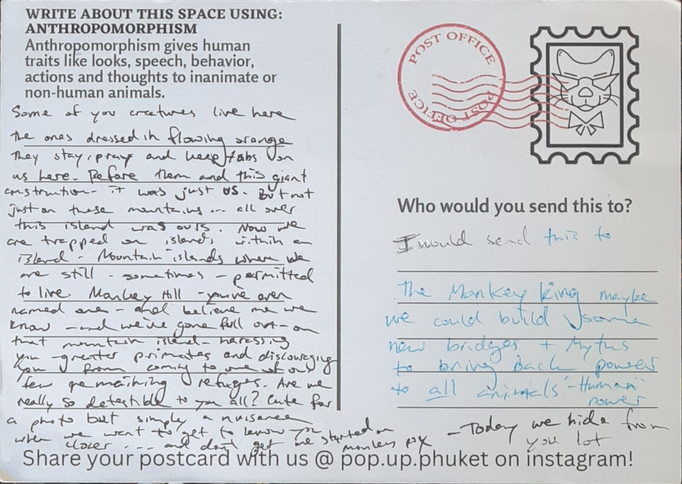 WRITE ABOUT THIS SPACE USING:
ANTHROPOMORPHISM
Anthropomorphism gives human
traits like looks, speech, behavior,
actions and thoughts to inanimate or
non-human animals.
Some of you creatures live here
the ones dressed in flowing orange
They stay, pray and keep tabs on
us here. Before them and this giant
construction - it was just us. But not
just on these mountains... all over
this island was ours. Now we
are trapped on islands within an
island - Mountain islands where we
are still - sometimes - permitted
to live. Monkey Hill - you've even
named one - and believe me we
know - and we've gone full out - on
that mountain island - harassing
you - greater primates and discouraging
you from coming to one of our
few remaining refuges. Are we
really so detestible to you all? Cute for
a photo but simply a nuisence
when we want to get to know you
closer... and don't get me started on
monkey pox
POST OFFICE
POST OFFICE
Who would you send this to?
I would send this to
The Monkey king maybe
we could build some
new bridges + Myths
to bring Back power
to all animals - "Human"
power
- Today we hide from
you lot
Share your postcard with us @ pop.up.phuket on instagram!